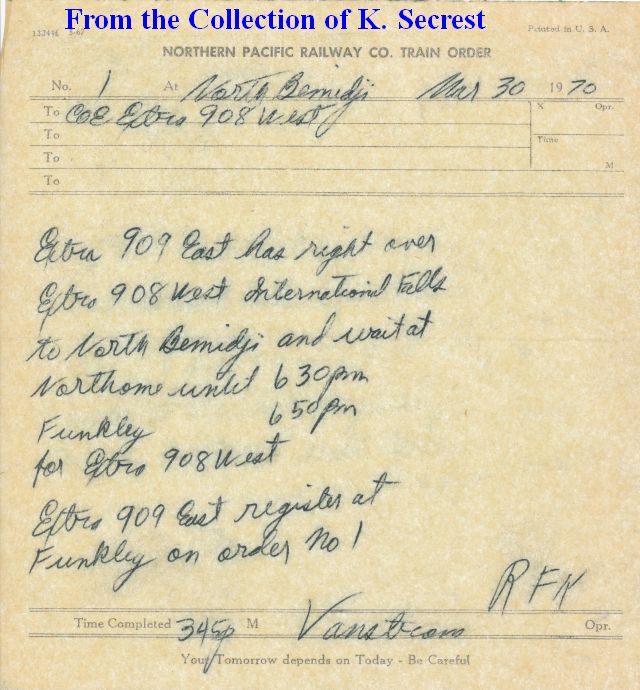 From the Collection of K. Secrest
132496 5-67 Printed in U. S. A.
NORTHERN PACIFIC RAILWAY CO. TRAIN ORDER
No. 1 At North Bemidji Mar 30 1970
To C&E Extra 908 West X Opr.
To Time
To M
To
Extra 909 East has right over
Extra 908 West International Falls
to North Bemidji and wait at
Northome until 630pm
Funkley 650pm
for Extra 908 West
Extra 909 East register at
Funkley on order No 1
RFK
Time Completed 345p M Vanstrom Opr.
Your Tomorrow depends on Today - Be Careful